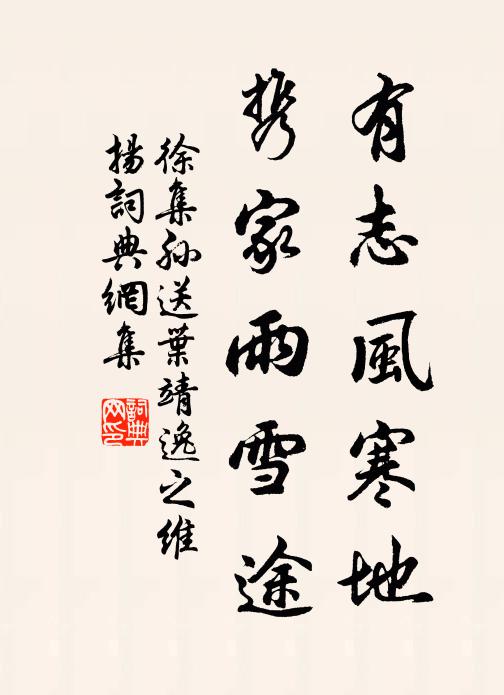 有志風寒地
携家雨雪途
徐集孫送葉靖逸之維
揚詞典網集
詞典
网印